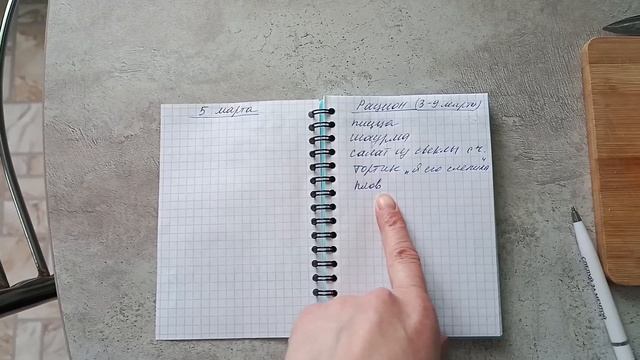 5 марта
Рацион (3-9 марта)
пицца
шаурма
салат из свеклы с ч.
тортик „Я его слепила"
плов